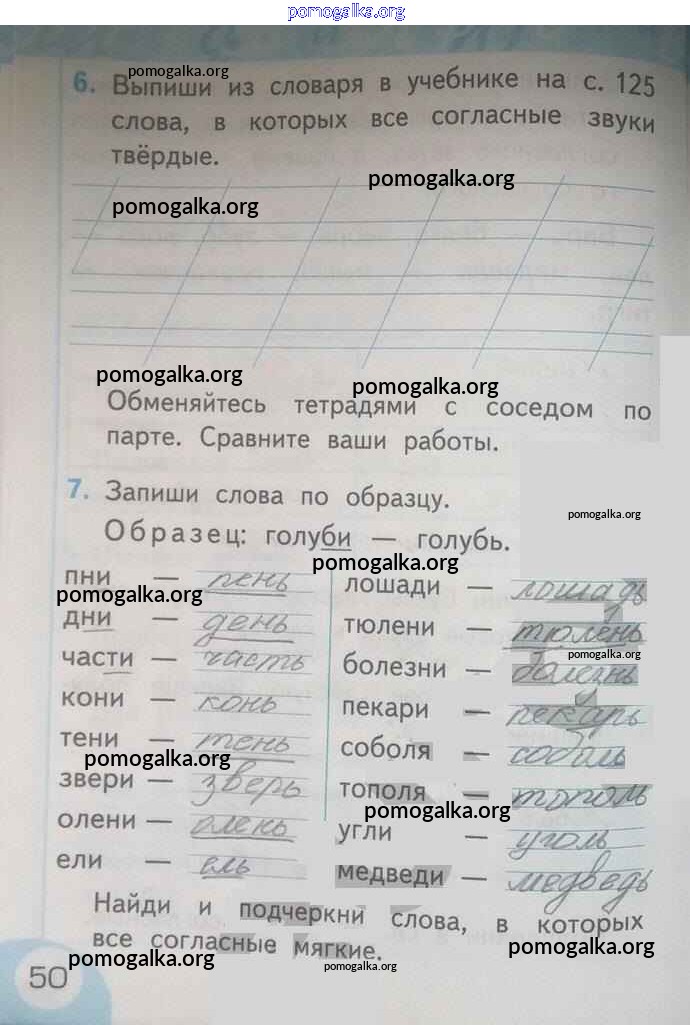 pomogalka.org
pomogalka.org
6. Выпиши из словаря в учебнике на с. 125
слова, в которых все согласные звуки
твёрдые.
pomogalka.org
pomogalka.org
pomogalka.org
pomogalka.org
Обменяйтесь тетрадями с соседом по
парте. Сравните ваши работы.
7. Запиши слова по образцу.
pomogalka.org
Образец: голуби — голубь.
pomogalka.org
пни — пень
лошади — лошадь
pomogalka.org
дни — день
тюлени — тюлень
pomogalka.org
части — часть
болезни — болезнь
кони — конь
пекари — пекарь
тени — тень
соболя — соболь
pomogalka.org
звери — зверь
тополя — тополь
pomogalka.org
олени — олень
угли — уголь
ели — ель
медведи — медведь
Найди и подчеркни слова, в которых
все согласные мягкие.
pomogalka.org
pomogalka.org
pomogalka.org
50